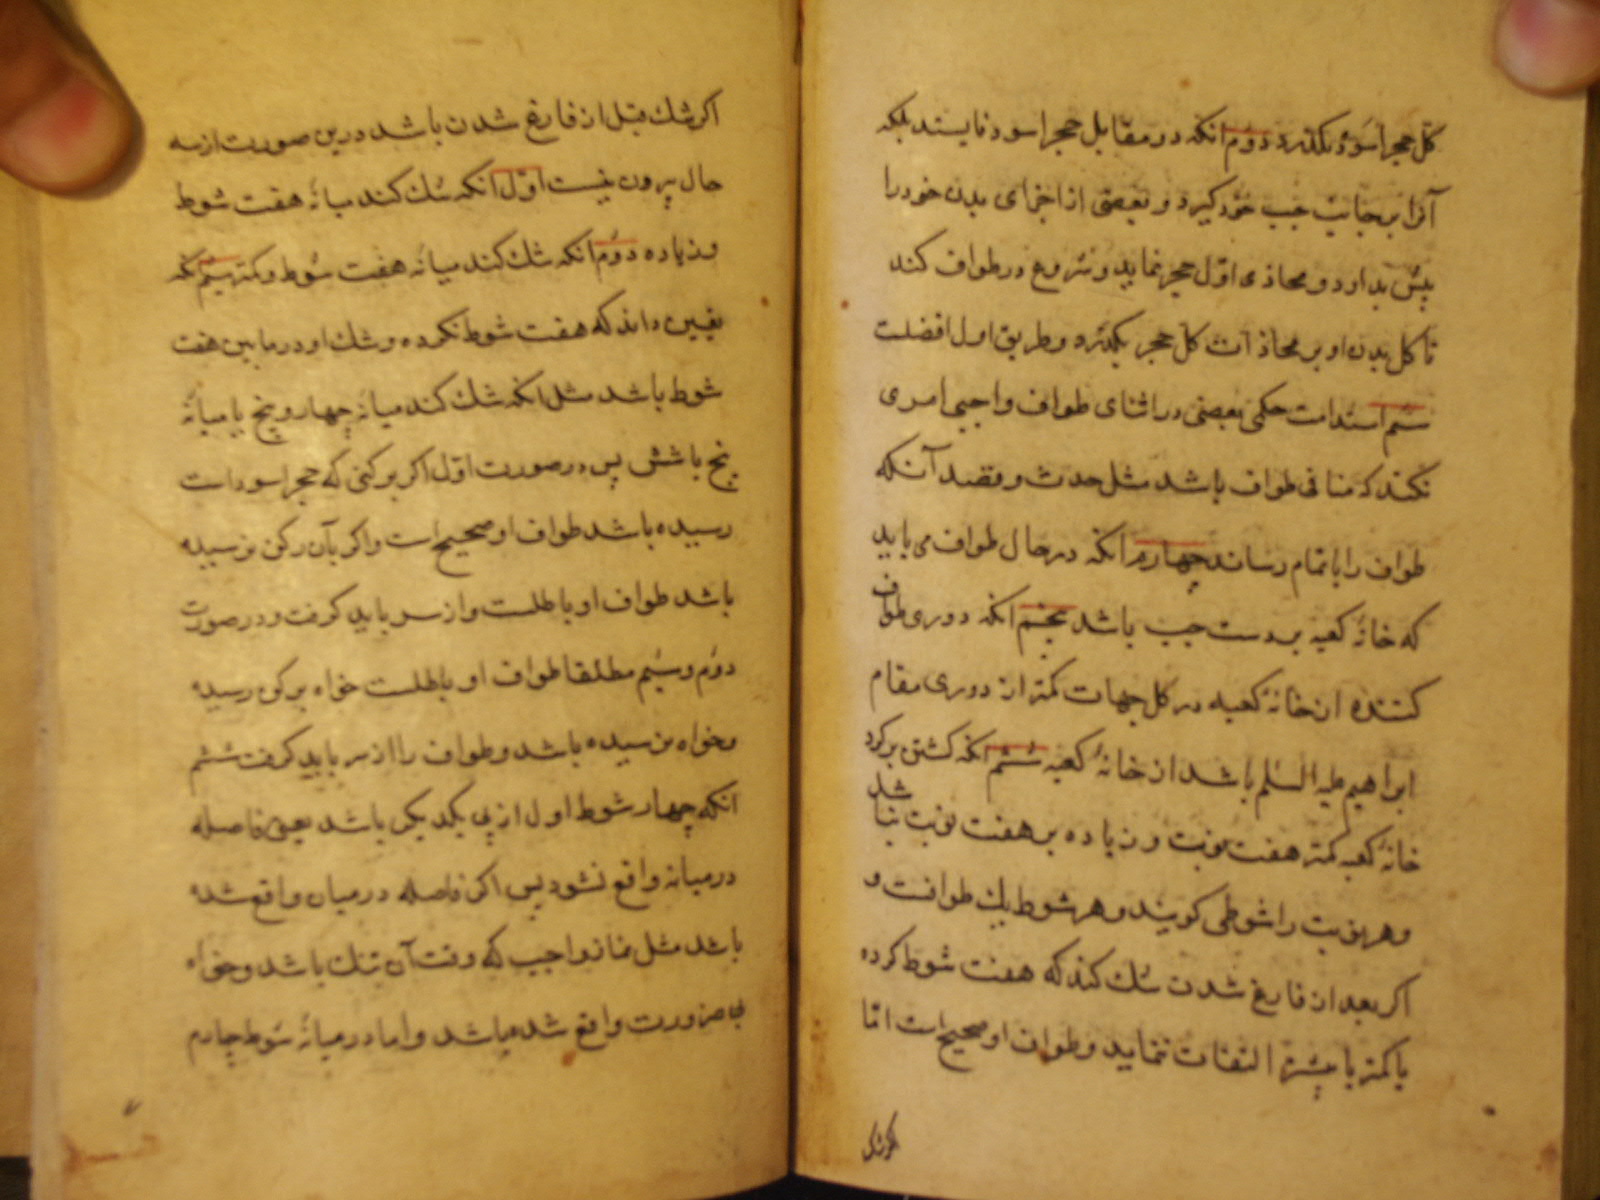 کل حجر اسود بکذرد دوم انکه در مقابل حجر اسود نایستد بلکه
آنرا بر جانب چپ خود کیرد و بعضی از اجزای بدن خود را
پیش بدارد و محاذی اول حجر نماید و شروع در طواف کند
تا کل بدن او بر محاذات کل حجر بکذرد و طریق اول افضلست
سیم استدامت حکمی یعنی در اثنای طواف واجبی امری
نکند که منافی طواف باشد مثل حدث و قصد آنکه
طواف را باتمام رساند چهارم انکه در حال طواف می باید
که خانهٔ کعبه بر دست چپ باشد پنجم انکه دوری طواف
کننده از خانهٔ کعبه در کل جهات کمتر از دوری مقام
ابراهیم علیه السلم باشد از خانهٔ کعبه ششم انکه کشتن بر کرد
خانهٔ کعبه کمتر هفت نوبت و زیاده بر هفت نوبت نباشد
و هر نوبت را شوطی کویند و هر شوط یك طوافست و
اکر بعد از فارغ شدن شك کند که هفت شوط کرده
یا کمتر یا بیشتر التفات ننماید و طواف او صحیح است امّا
اکر شك
اکر شك قبل از فارغ شدن باشد درین صورت از سه
حال بیرون نیست اوّل انکه شك کند میانهٔ هفت شوط
و زیاده دوم انکه شك کند میانهٔ هفت شوط و کمتر سیم انکه
یقین داند که هفت شوط نکرده و شك او در مابین هفت
شوط باشد مثل انکه شك کند میانهٔ چهار و پنج یا میانهٔ
پنج یا شش پس در صورت اوّل اکر بر کنی که حجر اسود است
رسیده باشد طواف او صحیح است و اکر بآن رکن نرسیده
باشد طواف او باطلست و از سر باید کرفت و در صورت
دوم و سیم مطلقا طواف او باطلست خواه برکن رسیده
و خواه نرسیده باشد و طواف را از سر باید کرفت ششم
انکه چهار شوط اول از پی یکدیکر باشد یعنی فاصله
در میانه واقع نشود پس اکر فاصله در میان واقع شده
باشد مثل نماز واجب که وقت آن تنك باشد و خواه
بی ضرورت واقع شده باشد و اما در میانهٔ شوط چهارم